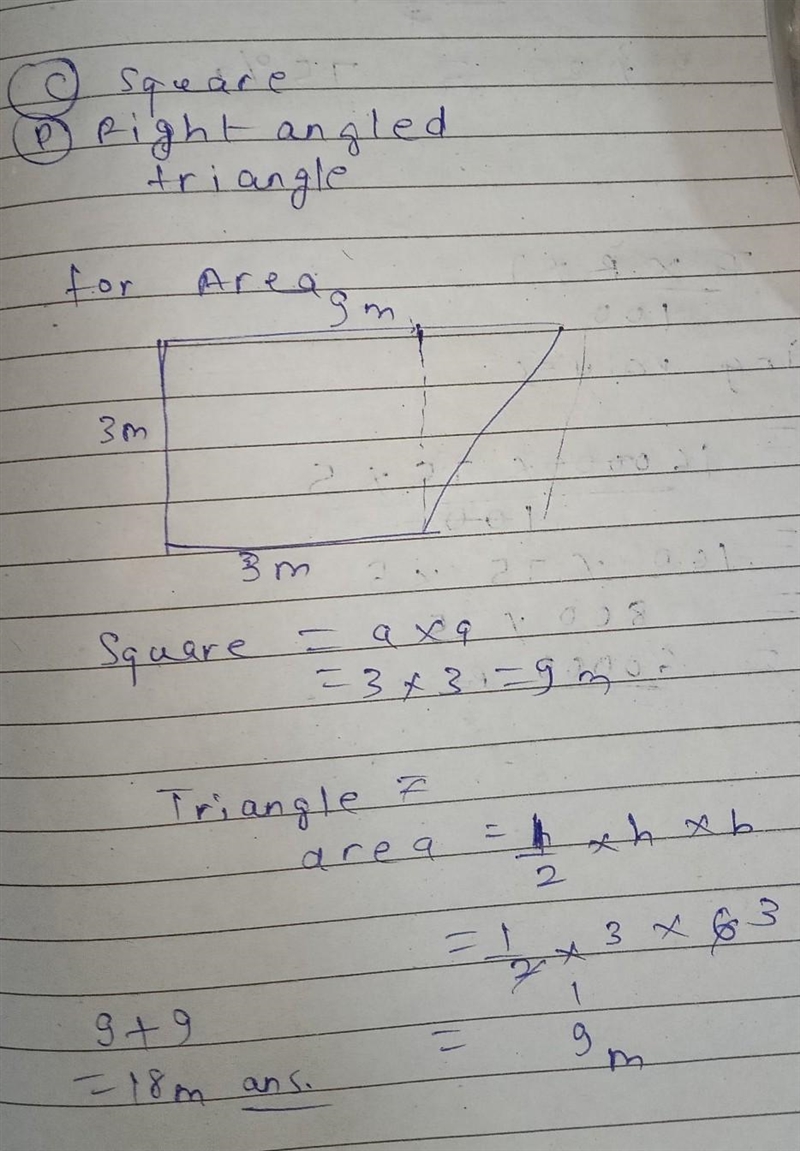 C) Square
D) Right angled
triangle
for Area
9 m
3m
3 m
Square = a x a
= 3 x 3 = 9 m
Triangle =
area = 1/2 x h x b
= 1/2 x 3 x 6 3
1
= 9 m
9 + 9
= 18m ans.